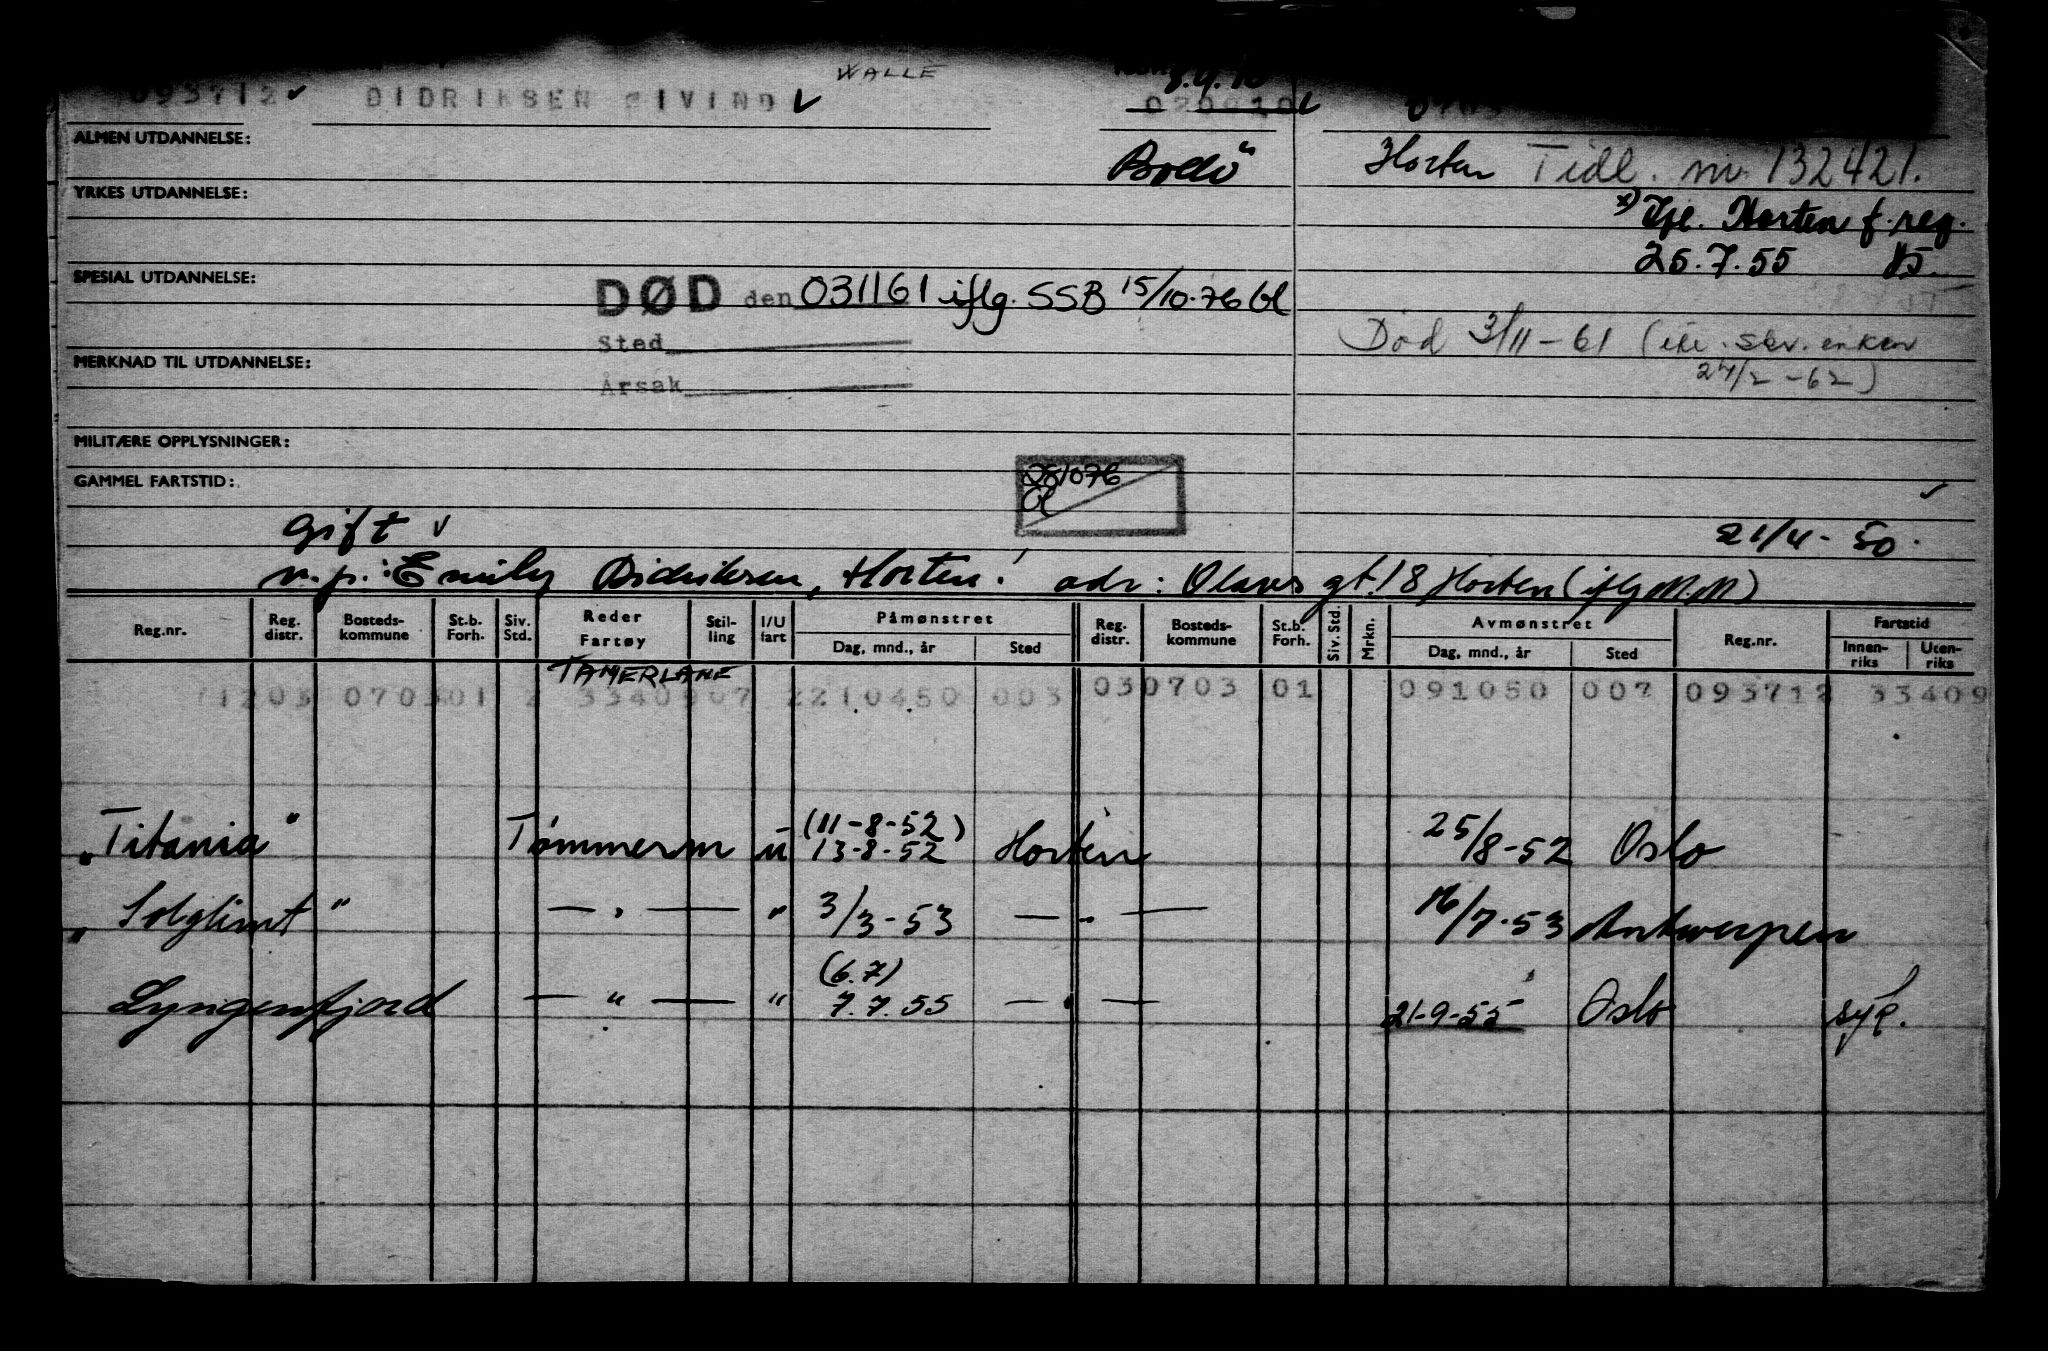 WALLE
093712 ✓ DIDRIKSEN EIVIND ✓ 020910 ✓
ALMEN UTDANNELSE:
Bodø" Horten Tidl. nr. 132421.
YRKES UTDANNELSE:
x) Horten f. reg.
25.7.55
SPESIAL UTDANNELSE:
DØD den 031161 iflg. SSB 15/10-76 Gl
Sted
Død 3/11-61 ( skr. enken
24/2-62)
MERKNAD TIL UTDANNELSE:
Årsak
MILITÆRE OPPLYSNINGER:
281076
Gl
GAMMEL FARTSTID:
✓
gift ✓ 21/4-50.
n.p.: Emily Didriksen, Horten! adr: Olavs gt. 18 Horten (iflg M.M)
Reg.nr. Reg. distr. Bosteds-kommune St.b. Forh. Siv. Std. Reder Fartøy Stil-ling I/U fart Påmønstret Dag, mnd., år Sted Reg. distr. Bosteds-kommune St.b. Forh. Siv. Std. Mrkn. Avmønstret Dag, mnd., år Sted Reg.nr. Fartstid Innen-riks Uten-riks
TAMERLANE
71203 070301 2 3340907 2210450 003 030703 01 091050 007 093712 33409
„Titania" Tømmerm u (11-8-52) 13-8-52 Horten 25/8-52 Oslo
„Solglimt" — " — " 3/3-53 — " — 16/7-53 Antwerpen
(6.7)
Lyngenfjord — " — " 7.7.55 — " — 21-9-55 Oslo syk.